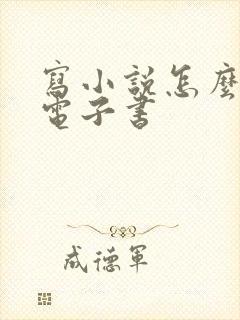 寫小說怎麼
電子書
成德軍